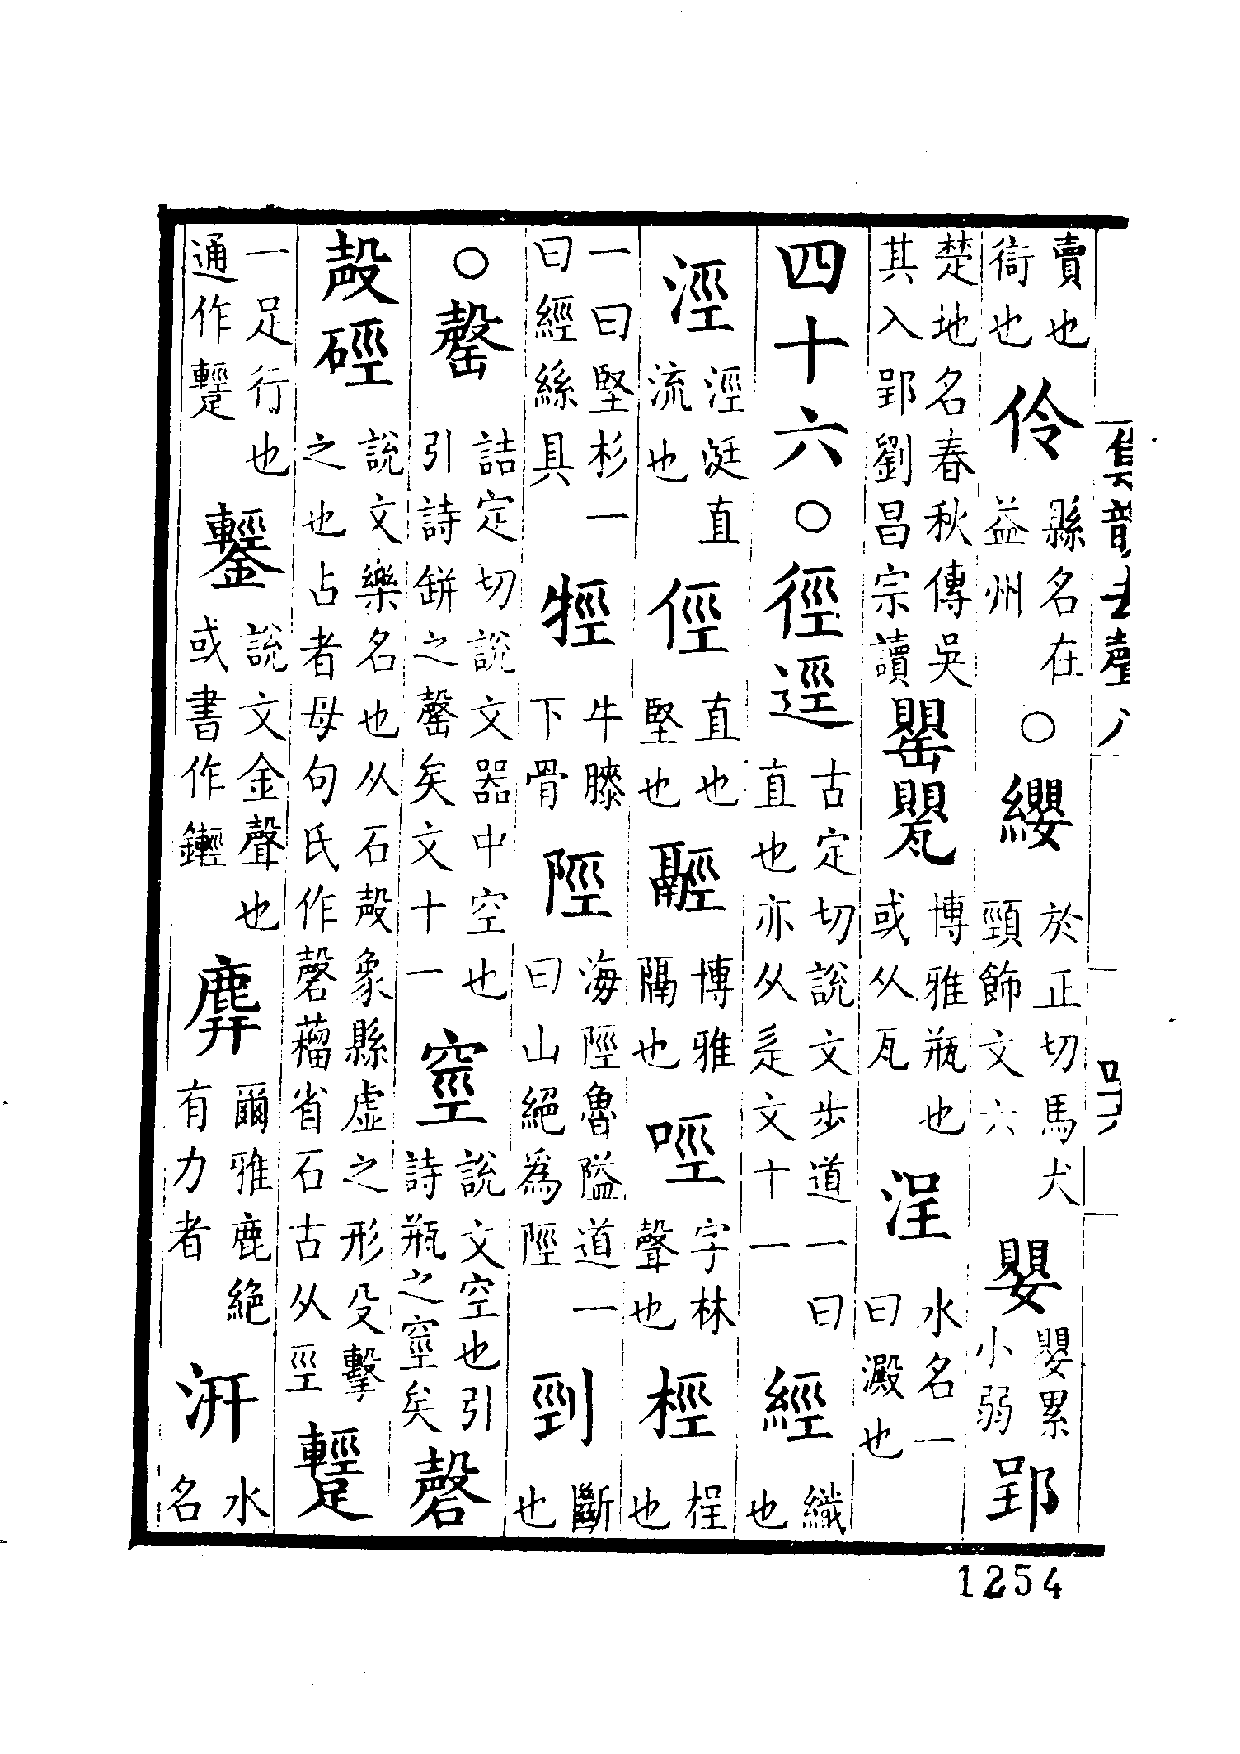 賣也衒也伶縣名在益州○纓於正切馬犬頸飾文六嬰嬰累小弱郢
楚地名春秋傳吳其入郢劉昌宗讀罌甖博雅瓶也或从瓦浧水名一曰澱也
四十六○徑逕古定切說文步道一曰直也亦从辵文十一經織也
涇涇涏直流也俓直也堅也䪫博雅隔也𠲮字林聲也桱桯也
一曰堅杉一曰經絲具牼牛膝下骨陘海陘魯隘道一曰山絕為陘剄斷也
○罄詰定切說文器中空也引詩缾之罄矣文十一窒說文空也引詩瓶之窒矣磬
殸硜說文樂名也从石殸象縣虛之形殳擊之也占者母句氏作磬籀省石古从巠䠮
一足行也通作䠮鑋說文金聲也或書作鏗𪊑爾雅鹿絕有力者汧水名
集韻去聲八
四十六
1254